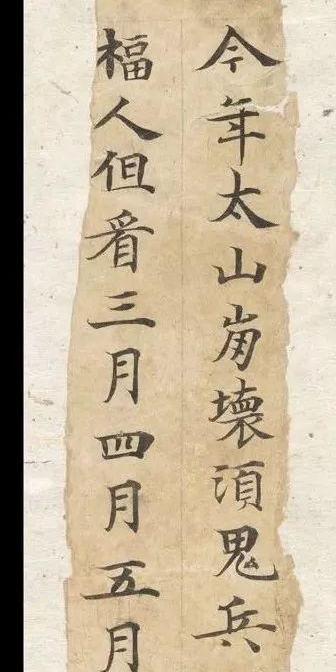 今年太山崩壞須鬼兵
楅人但看三月四月五月